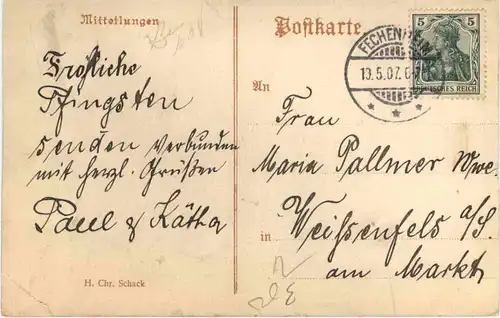 Mitteilungen
Fröhliche
Pfingsten
senden verbunden
mit herzl. Grüßen
Paul & Kätha
H. Chr. Schack
Postkarte
FECHENHEIM
5 5
DEUTSCHES REICH
An
Frau
Maria Pallmer Wwe.
in Weißenfels a/S.
am Markt